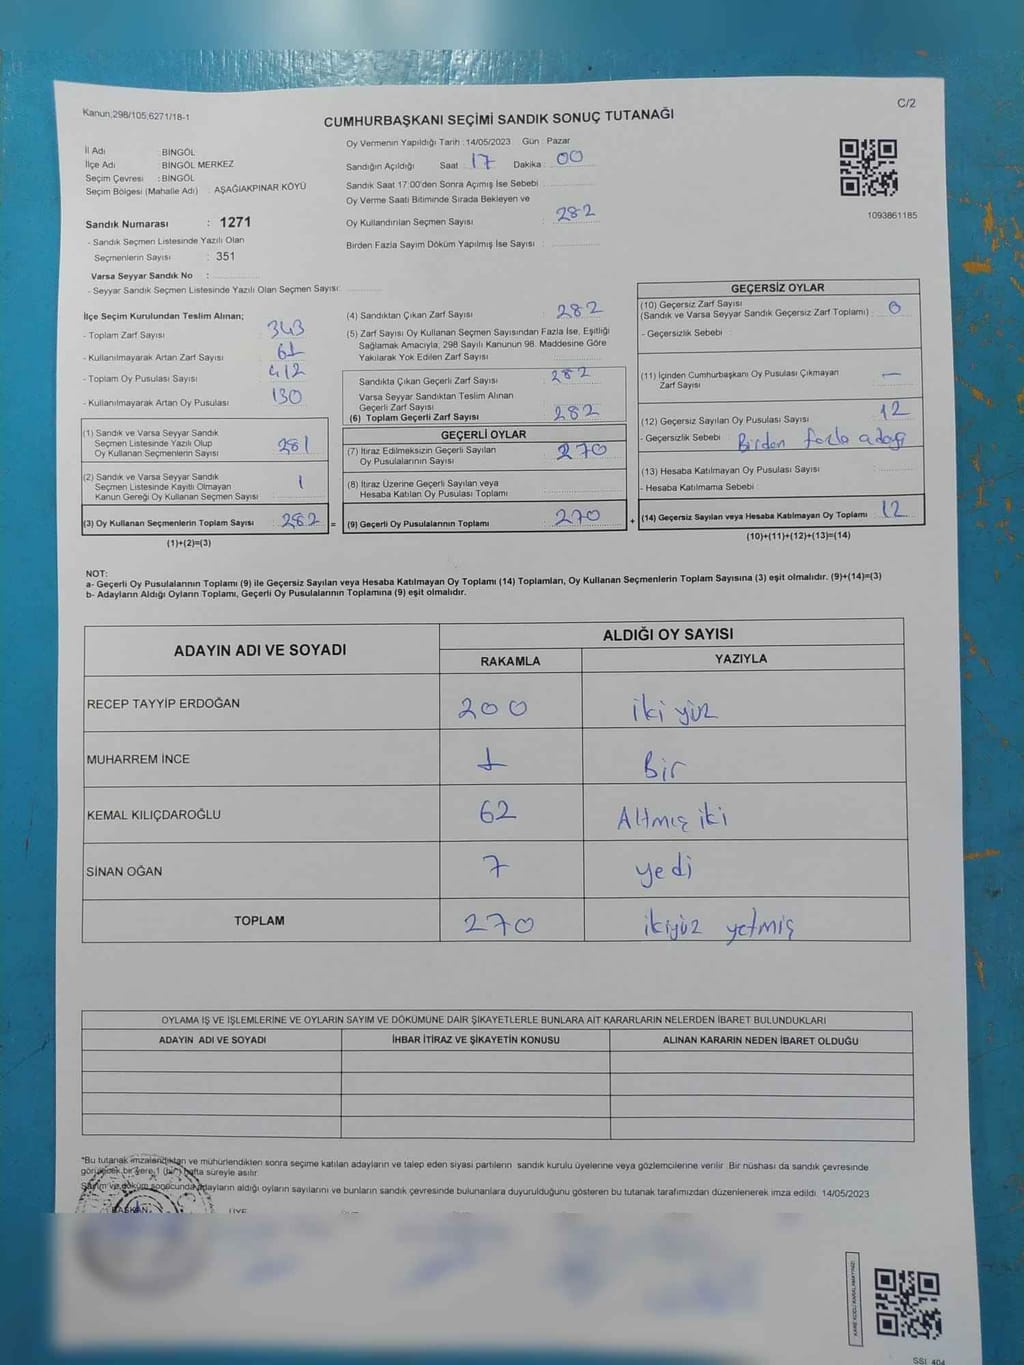 Kanun;298/105;6271/18-1
C/2
CUMHURBAŞKANI SEÇİMİ SANDIK SONUÇ TUTANAĞI
İl Adı : BİNGÖL
İlçe Adı : BİNGÖL MERKEZ
Seçim Çevresi : BİNGÖL
Seçim Bölgesi (Mahalle Adı) : AŞAĞIAKPINAR KÖYÜ
Sandık Numarası : 1271
- Sandık Seçmen Listesinde Yazılı Olan
Seçmenlerin Sayısı : 351
Varsa Seyyar Sandık No :
- Seyyar Sandık Seçmen Listesinde Yazılı Olan Seçmen Sayısı:
Oy Vermenin Yapıldığı Tarih :14/05/2023 Gün : Pazar
Sandığın Açıldığı Saat : 17 Dakika : 00
Sandık Saat 17:00'den Sonra Açımış İse Sebebi :
Oy Verme Saati Bitiminde Sırada Bekleyen ve
Oy Kullandırılan Seçmen Sayısı : 282
Birden Fazla Sayım Döküm Yapılmış İse Sayısı :
1093861185
İlçe Seçim Kurulundan Teslim Alınan;
- Toplam Zarf Sayısı : 343
- Kullanılmayarak Artan Zarf Sayısı : 61
- Toplam Oy Pusulası Sayısı : 412
- Kullanılmayarak Artan Oy Pusulası : 130
(1) Sandık ve Varsa Seyyar Sandık
Seçmen Listesinde Yazılı Olup
Oy Kullanan Seçmenlerin Sayısı : 281
(2) Sandık ve Varsa Seyyar Sandık
Seçmen Listesinde Kayıtlı Olmayan
Kanun Gereği Oy Kullanan Seçmen Sayısı : 1
(3) Oy Kullanan Seçmenlerin Toplam Sayısı : 282 =
(1)+(2)=(3)
(4) Sandıktan Çıkan Zarf Sayısı : 282
(5) Zarf Sayısı Oy Kullanan Seçmen Sayısından Fazla İse, Eşitliği
Sağlamak Amacıyla, 298 Sayılı Kanunun 98. Maddesine Göre
Yakılarak Yok Edilen Zarf Sayısı :
Sandıkta Çıkan Geçerli Zarf Sayısı : 282
Varsa Seyyar Sandıktan Teslim Alınan
Geçerli Zarf Sayısı :
(6) Toplam Geçerli Zarf Sayısı : 282
GEÇERLİ OYLAR
(7) İtiraz Edilmeksizin Geçerli Sayılan
Oy Pusulalarının Sayısı : 270
(8) İtiraz Üzerine Geçerli Sayılan veya
Hesaba Katılan Oy Pusulası Toplamı :
(9) Geçerli Oy Pusulalarının Toplamı : 270 +
GEÇERSİZ OYLAR
(10) Geçersiz Zarf Sayısı
(Sandık ve Varsa Seyyar Sandık Geçersiz Zarf Toplamı) : 0
- Geçersizlik Sebebi :
(11) İçinden Cumhurbaşkanı Oy Pusulası Çıkmayan
Zarf Sayısı : —
(12) Geçersiz Sayılan Oy Pusulası Sayısı : 12
- Geçersizlik Sebebi : Birden fazla adayı
(13) Hesaba Katılmayan Oy Pusulası Sayısı :
- Hesaba Katılmama Sebebi :
(14) Geçersiz Sayılan veya Hesaba Katılmayan Oy Toplamı : 12
(10)+(11)+(12)+(13)=(14)
NOT:
a- Geçerli Oy Pusulalarının Toplamı (9) ile Geçersiz Sayılan veya Hesaba Katılmayan Oy Toplamı (14) Toplamları, Oy Kullanan Seçmenlerin Toplam Sayısına (3) eşit olmalıdır. (9)+(14)=(3)
b- Adayların Aldığı Oyların Toplamı, Geçerli Oy Pusulalarının Toplamına (9) eşit olmalıdır.
ADAYIN ADI VE SOYADI ALDIĞI OY SAYISI
RAKAMLA YAZIYLA
RECEP TAYYİP ERDOĞAN 200 iki yüz
MUHARREM İNCE 1 Bir
KEMAL KILIÇDAROĞLU 62 Altmış iki
SİNAN OĞAN 7 yedi
TOPLAM 270 ikiyüz yetmiş
OYLAMA İŞ VE İŞLEMLERİNE VE OYLARIN SAYIM VE DÖKÜMÜNE DAİR ŞİKAYETLERLE BUNLARA AİT KARARLARIN NELERDEN İBARET BULUNDUKLARI
ADAYIN ADI VE SOYADI İHBAR İTİRAZ VE ŞİKAYETİN KONUSU ALINAN KARARIN NEDEN İBARET OLDUĞU
*Bu tutanak imzalandıktan ve mühürlendikten sonra seçime katılan adayların ve talep eden siyasi partilerin sandık kurulu üyelerine veya gözlemcilerine verilir. Bir nüshası da sandık çevresinde
görülecek bir yere 1 (bir) hafta süreyle asılır.
Sayım ve döküm sonucunda adayların aldığı oyların sayılarını ve bunların sandık çevresinde bulunanlara duyurulduğunu gösteren bu tutanak tarafımızdan düzenlenerek imza edildi. 14/05/2023
BAŞKAN ÜYE
KARE KODU KARALAMAYINIZ!
SSI_404